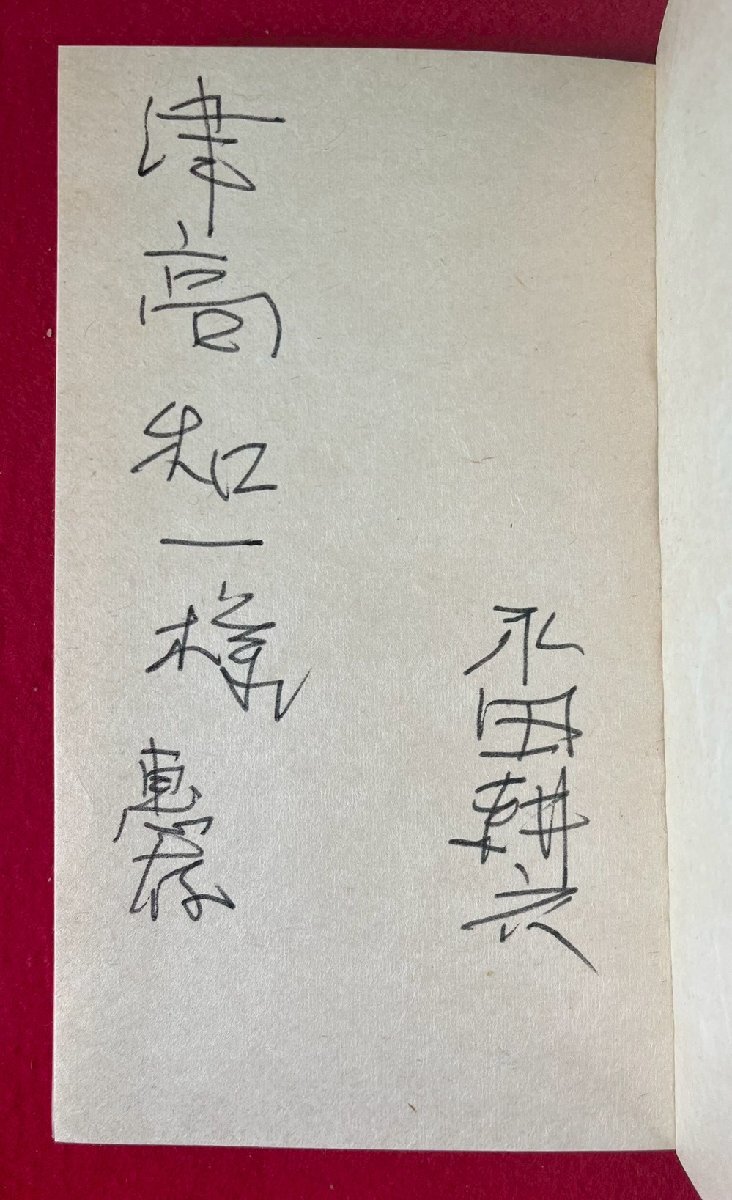 永田耕衣
津高和一様 恵存